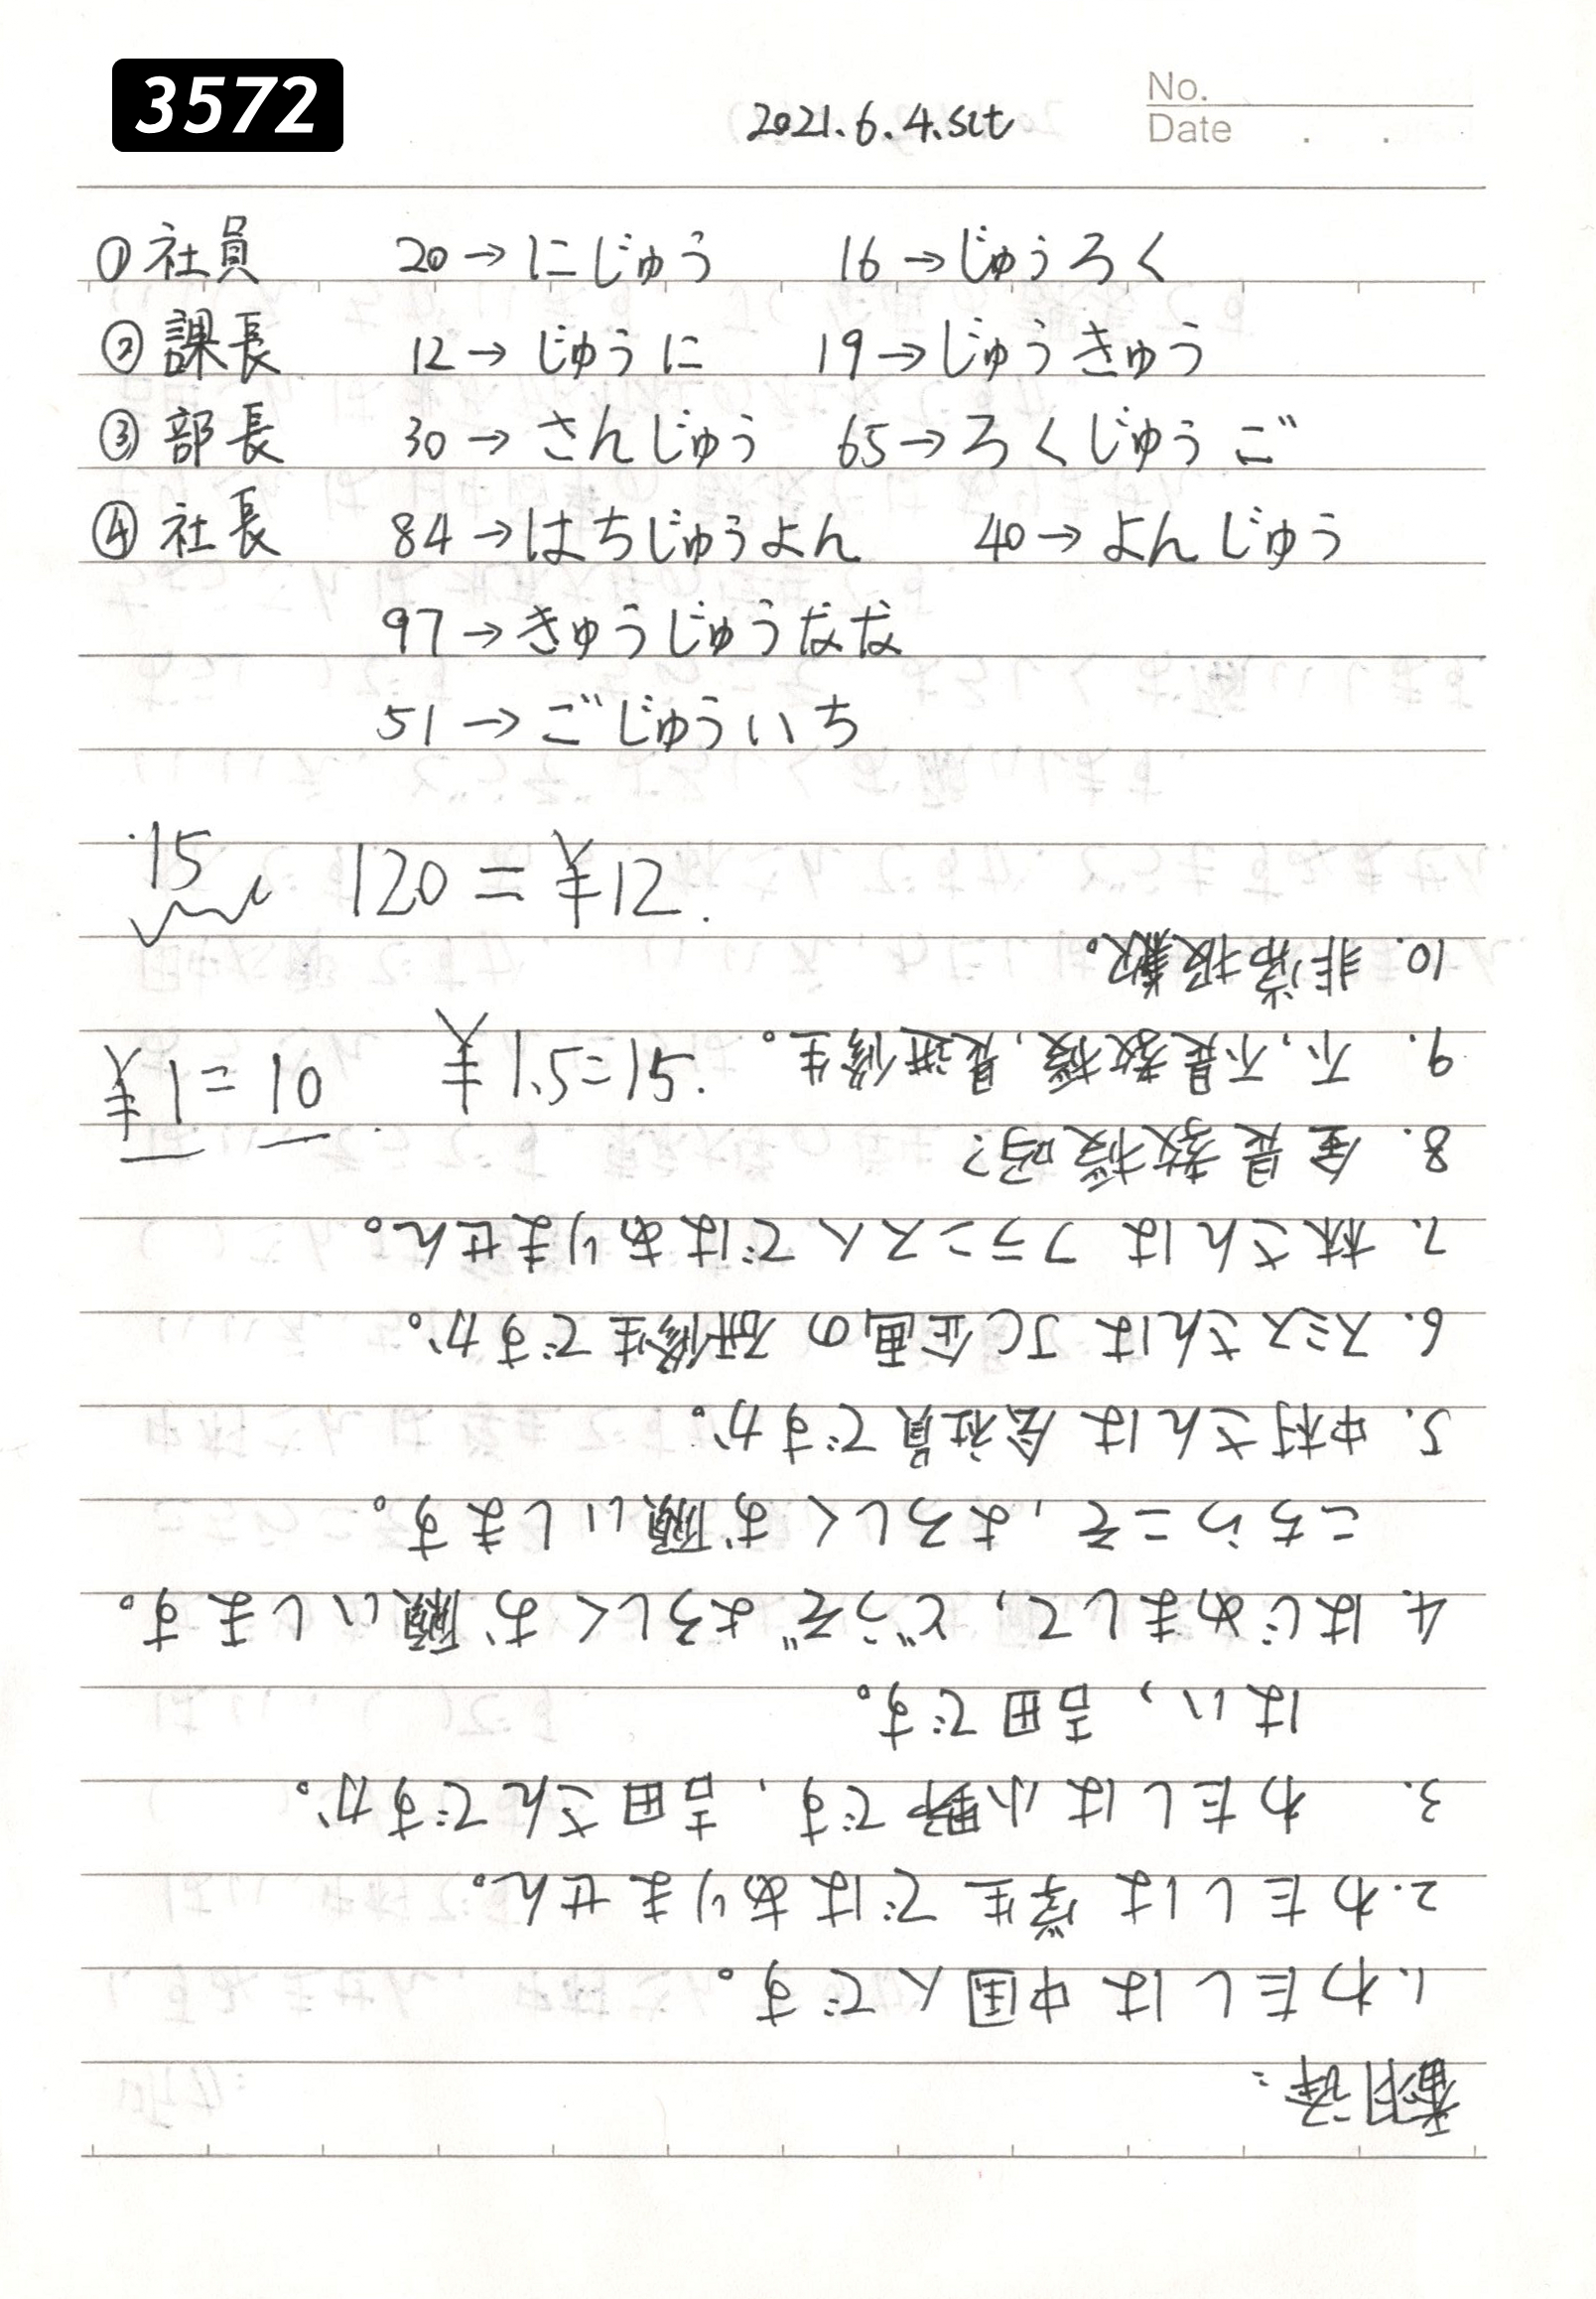 3572
2021.6.4.sat
No.
Date . .
①社員 20→にじゅう 16→じゅうろく
②課長 12→じゅうに 19→じゅうきゅう
③部長 30→さんじゅう 65→ろくじゅうご
④社長 84→はちじゅうよん 40→よんじゅう
97→きゅうじゅうなな
51→ごじゅういち
15 120=¥12.
¥1=10 ¥1.5=15.
翻译:
1.わたしは中国人です。
2.わたしは学生ではありません。
3. わたしは小野です,吉田さんですか。
はい,吉田です。
4.はじめまして,どうぞよろしくお願いします。
こちらこそ,よろしくお願いします。
5.中村さんは会社員ですか。
6.スミスさんはJC企画の研修生ですか。
7.林さんはフランス人ではありません。
8. 是教授吗?
9. 不,不是教授,是进修生。
10.非常抱歉。